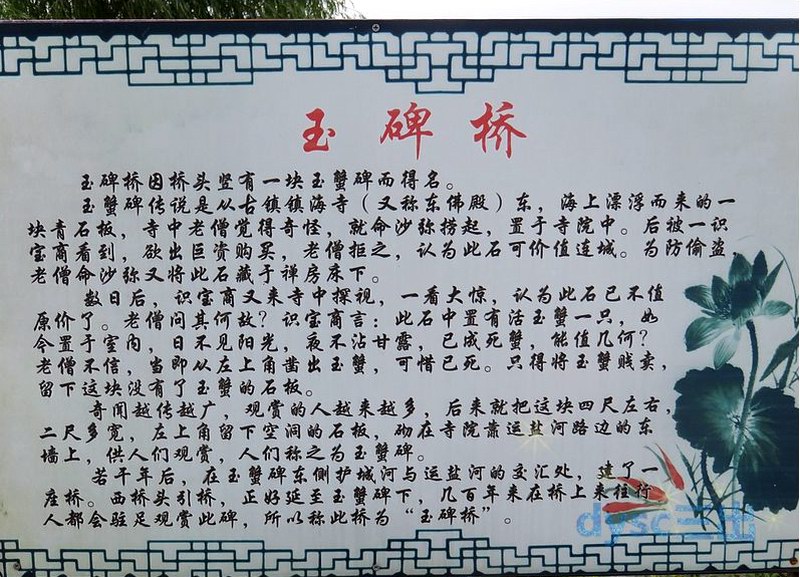 玉碑桥
玉碑桥因桥头竖有一块玉蟹碑而得名。
玉蟹碑传说是从古镇镇海寺（又称东佛殿）东，海上漂浮而来的一
块青石板，寺中老僧觉得奇怪，就命沙弥捞起，置于寺院中。后被一识
宝商看到，欲出巨资购买，老僧拒之，认为此石可价值连城。为防偷盗
老僧命沙弥又将此石藏于禅房床下。
数日后，识宝商又来寺中探视，一看大惊，认为此石已不值
原价了。老僧问其何故？识宝商言：此石中置有活玉蟹一只，如
今置于室内，日不见阳光，夜不沾甘露，已成死蟹，能值几何？
老僧不信，当即从左上角凿出玉蟹，可惜已死。只得将玉蟹贱卖，
留下这块没有了玉蟹的石板。
奇闻越传越广，观赏的人越来越多，后来就把这块四尺左右，
二尺多宽，左上角留下空洞的石板，砌在寺院靠运盐河路边的东
墙上，供人们观赏，人们称之为玉蟹碑。
若干年后，在玉蟹碑东侧护城河与运盐河的交汇处，建了一
座桥。西桥头引桥，正好延至玉蟹碑下，几百年来在桥上来往行
人都会驻足观赏此碑，所以称此桥为“玉碑桥”。
dysc三出